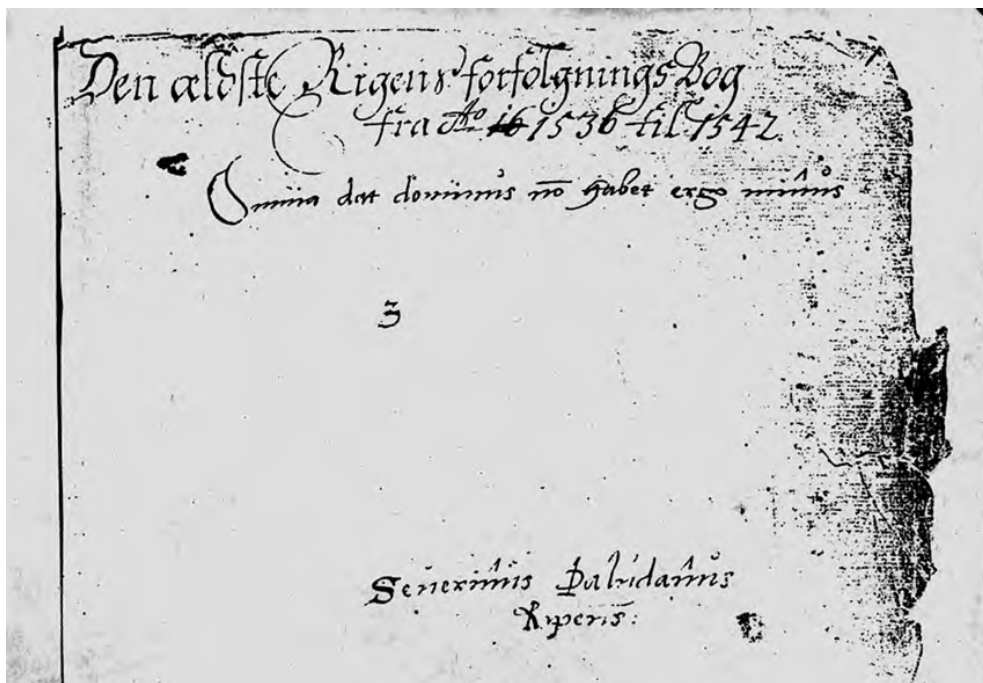 Den ældste Rigens forfølgnings Bog
fra Ao 16 1536 til 1542.
Omnia dat dominus nō habet ergo minus
3
Seuerinus Paludanus
Ripens̄: